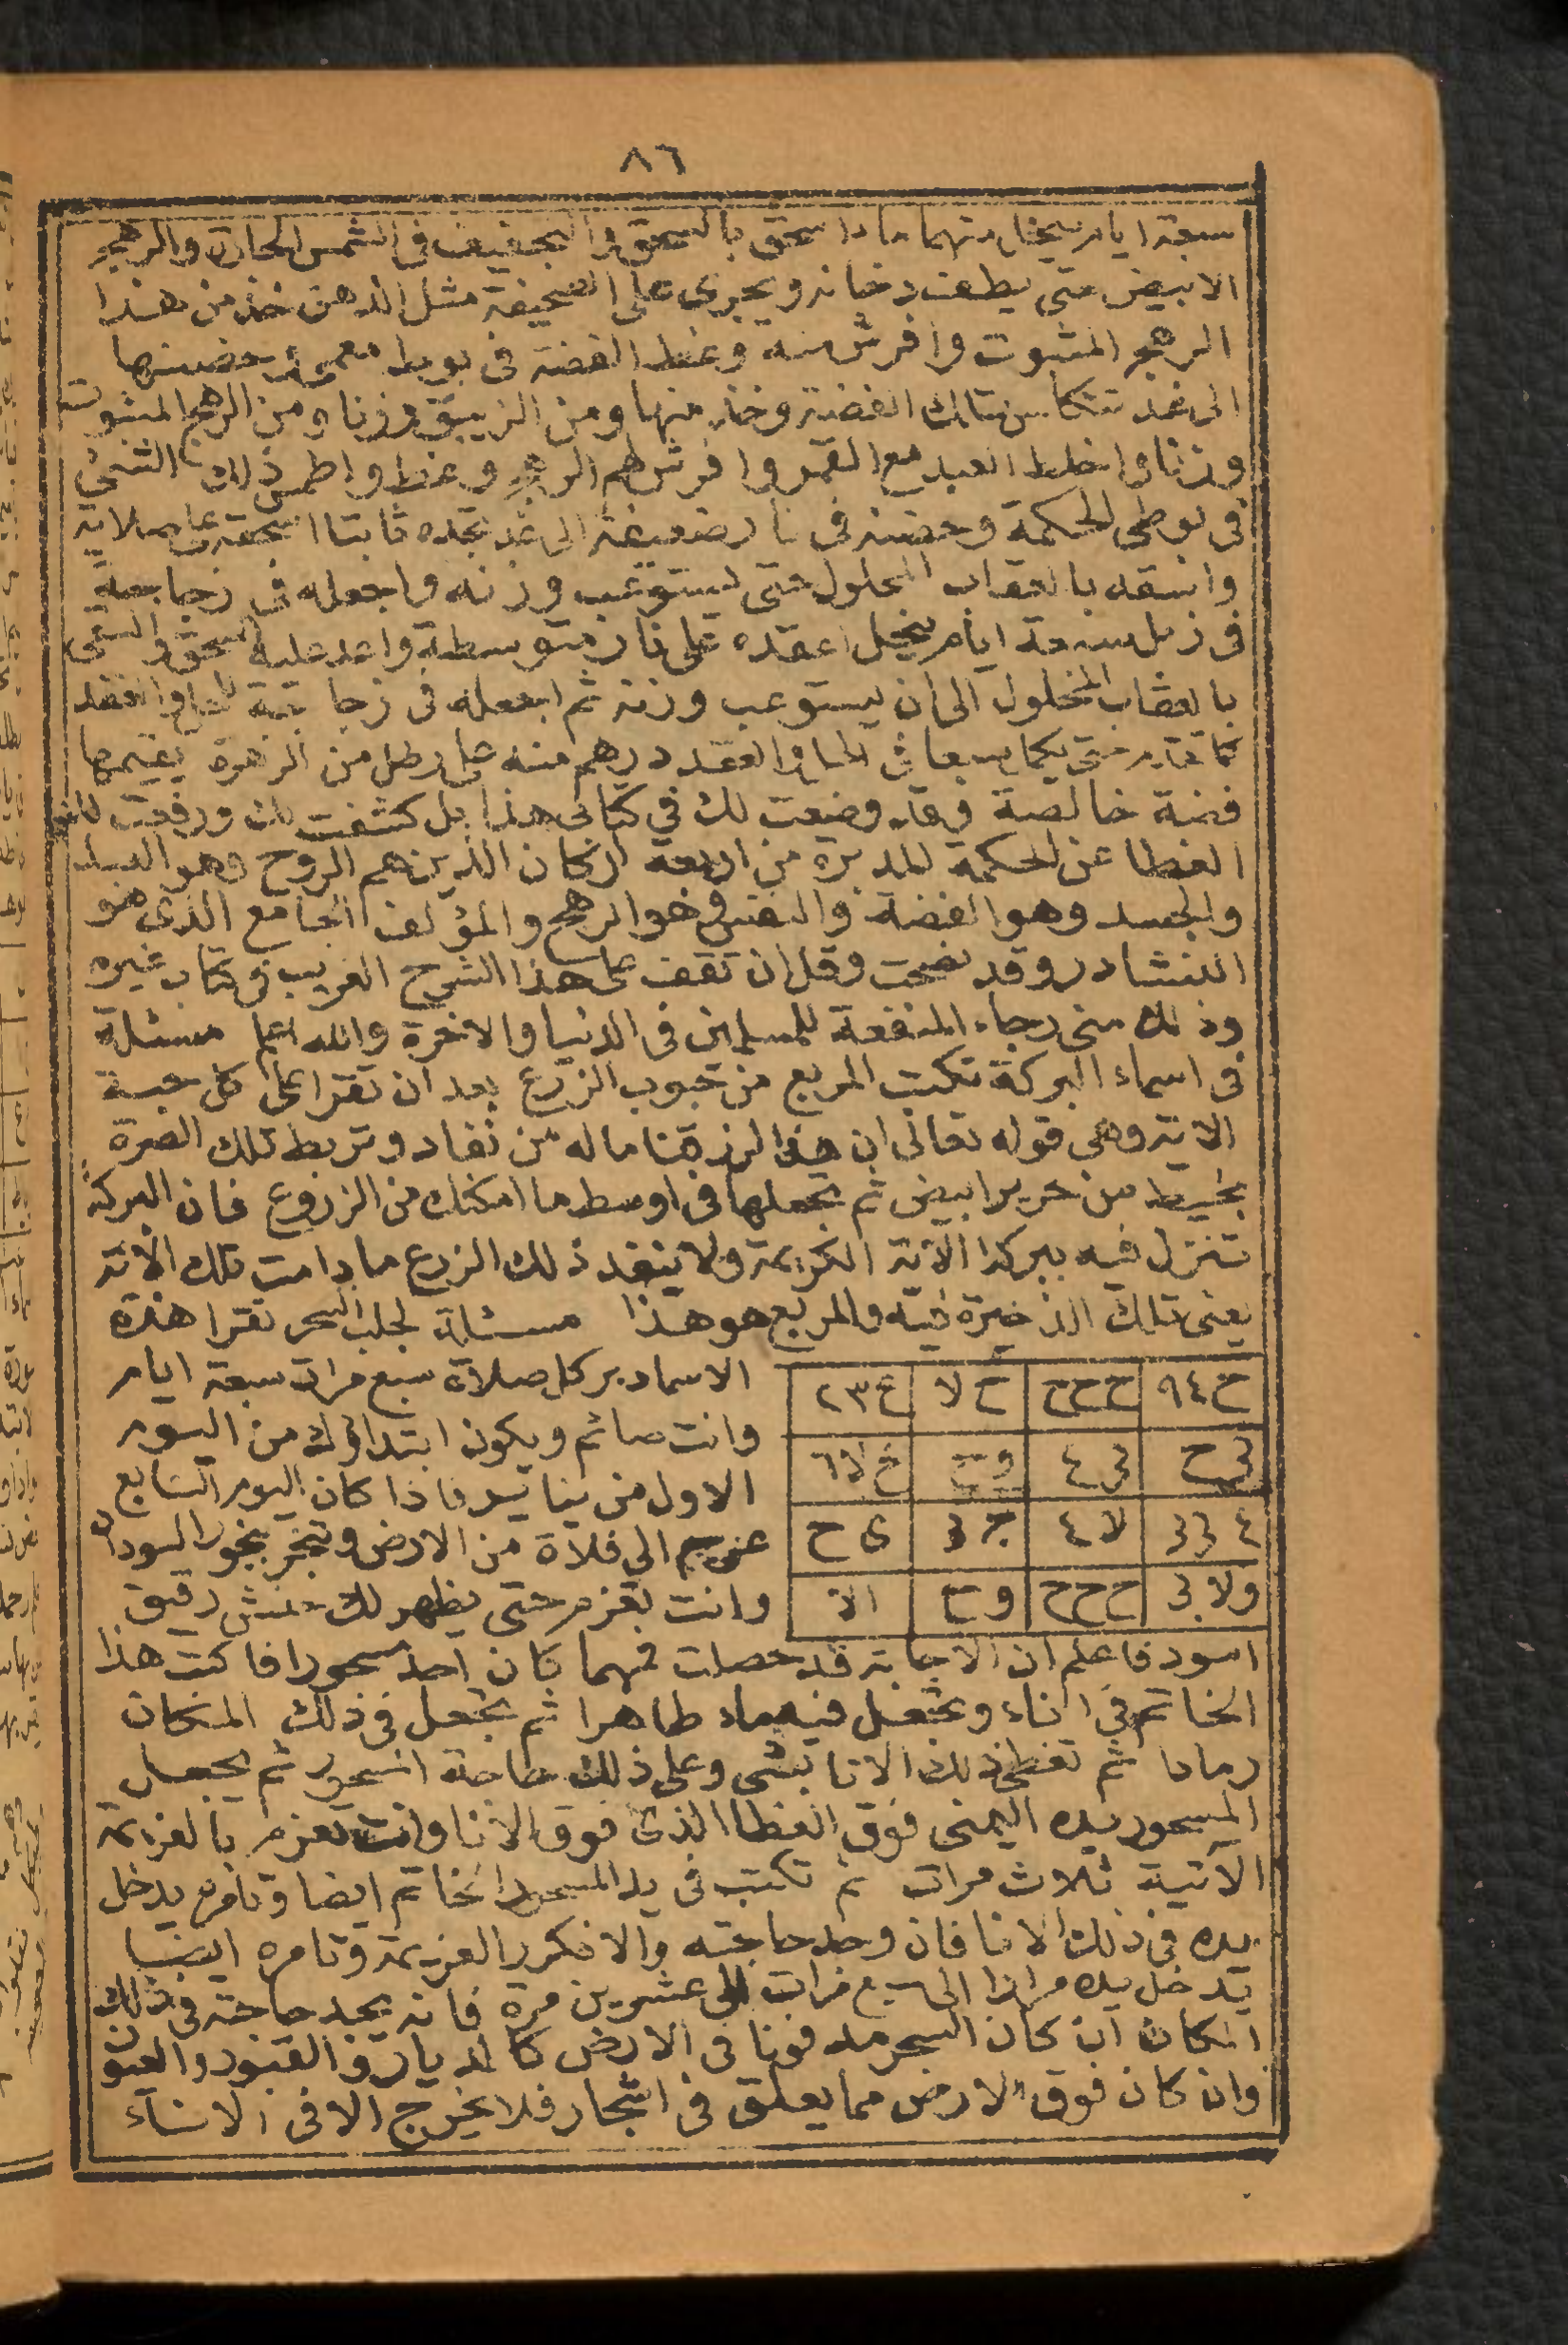 ٨٦
سبعة ايام ينحل منهما ماء اسحق بالسحق والتجفيف فى الشمس الحارة والرهج
الابيض حتى يطعن دخانه ويجرى على الصحيفة مثل الدهن خذ من هذا
الرهج المثبوت وافرش منه وغط الفضة فى بوط معمى حضنها
الى غد تتكلس تلك الفضة وخذ منها ومن الزيبق وزنا ومن الرهج المثبوت
وزنا واخلط العبد مع القمر وافرش لهم الرهج وغط واطمس ذلك الشئ
فى بوطى الحكمة وحضنه فى نار ضعيفة الى غد تجده ثابتا اسحقه على صلاية
واسقه بالعقاب المحلول حتى يستوعب وزنه واجعله فى زجاجة
فى زبل سبعة ايام ينحل اعقده على نار متوسطة واعد عليه السحق والسقى
بالعقاب المحلول الى ان يستوعب وزنه ثم اجعله فى زجاجة للحل والعقد
كما تقدم حتى يكمل سبعا فى الحل والعقد درهم منه على رطل من الزهرة يقيمها
فضة خالصة وقد وضعت لك في كتابى هذا بل كشفت لك ورفعت لك
الغطا عن الحكمة المدبرة من اربعة اركان الذين هم الروح وهو العبد
والجسد وهو الفضة والنفس وهو الرهج والمؤلف الجامع الذى هو
النشادر وقد نصحت وقل ان تقف على هذا الشرح الغريب فى كتاب غيره
وذلك منى رجاء المنفعة للمسلمين فى الدنيا والاخرة والله اعلم مسئلة
فى اسماء البركة تكتب المربع من حبوب الزرع بعد ان تقرا على كل حبة
الاية وهى قوله تعالى ان هذا لرزقنا ماله من نفاد وتربط تلك الصرة
بخيط من حرير ابيض ثم تجعلها فى اوسط ما امكنك من الزروع فان البركة
تنزل فيه ببركة الآية الكريمة ولا ينفد ذلك الزرع ما دامت تلك الاية
يعنى تلك الذخيرة فيه والمربع هو هذا مسئلة لجلب السحر تقرا هذه
الاسما دبر كل صلاة سبع مرات سبعة ايام
وانت صائم ويكون ابتداؤك من اليوم
الاول من يناير فاذا كان اليوم السابع
الي فلاة من الارض وتبخر بخور السودان
وانت تعزم حتى يظهر لك حنش رقيق
ح٩٤ | ححح | ح لا | ع٢٣
لى ح | لى ٤ | و ح | ح لا ٦
٤ | لا ٤ | | ى ح
ولا لى | ححح | و ح | الا
اسود فاعلم ان الاجابة قد حصلت فمهما كان احد مسحورا فاكتب هذا
الخاتم في اناء وتجعل فيه ماء طاهرا ثم تجعل فى ذلك المكان
رمادا ثم تغطى ذلك الانا بشى وعلى ذلك حاجة المسحور ثم يجعل
المسحور يده اليمنى فوق الغطا الذى فوق الانا وانت تعزم بالعزيمة
الآتية ثلاث مرات ثم تكتب فى يد المسحور الخاتم ايضا وتامره يدخل
يده فى ذلك الانا فان وجد حاجته والا فكرر العزيمة وتامره ايضا
يدخل يده مرارا الى سبع مرات الى عشرين مرة فانه يجد حاجته فى ذلك
المكان ان كان السحر مدفونا فى الارض كالديار والقبور والعيون
وان كان فوق الارض مما يعلق فى اشجار فلا يخرج الا فى الاناء